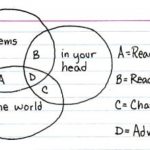 ems
B
in your
head
A
D
C
he world
A=Rea
B=Rea
C=Cha
D=Adv